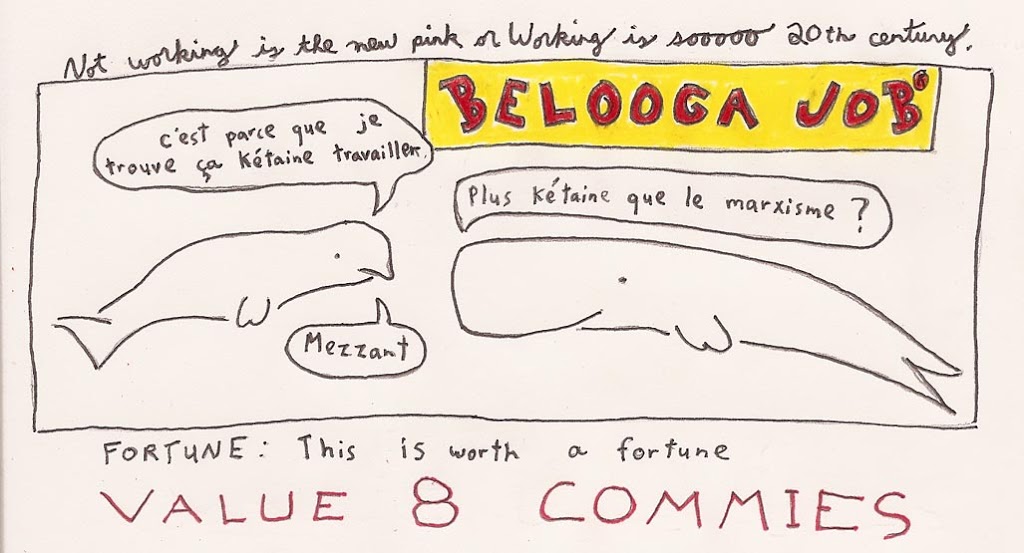 Not working is the new pink or Working is sooooo 20th century.
BELOOGA JOB®
c'est parce que je
trouve ça kétaine travailler.
Plus kétaine que le marxisme ?
Mezzant
FORTUNE: This is worth a fortune
VALUE 8 COMMIES